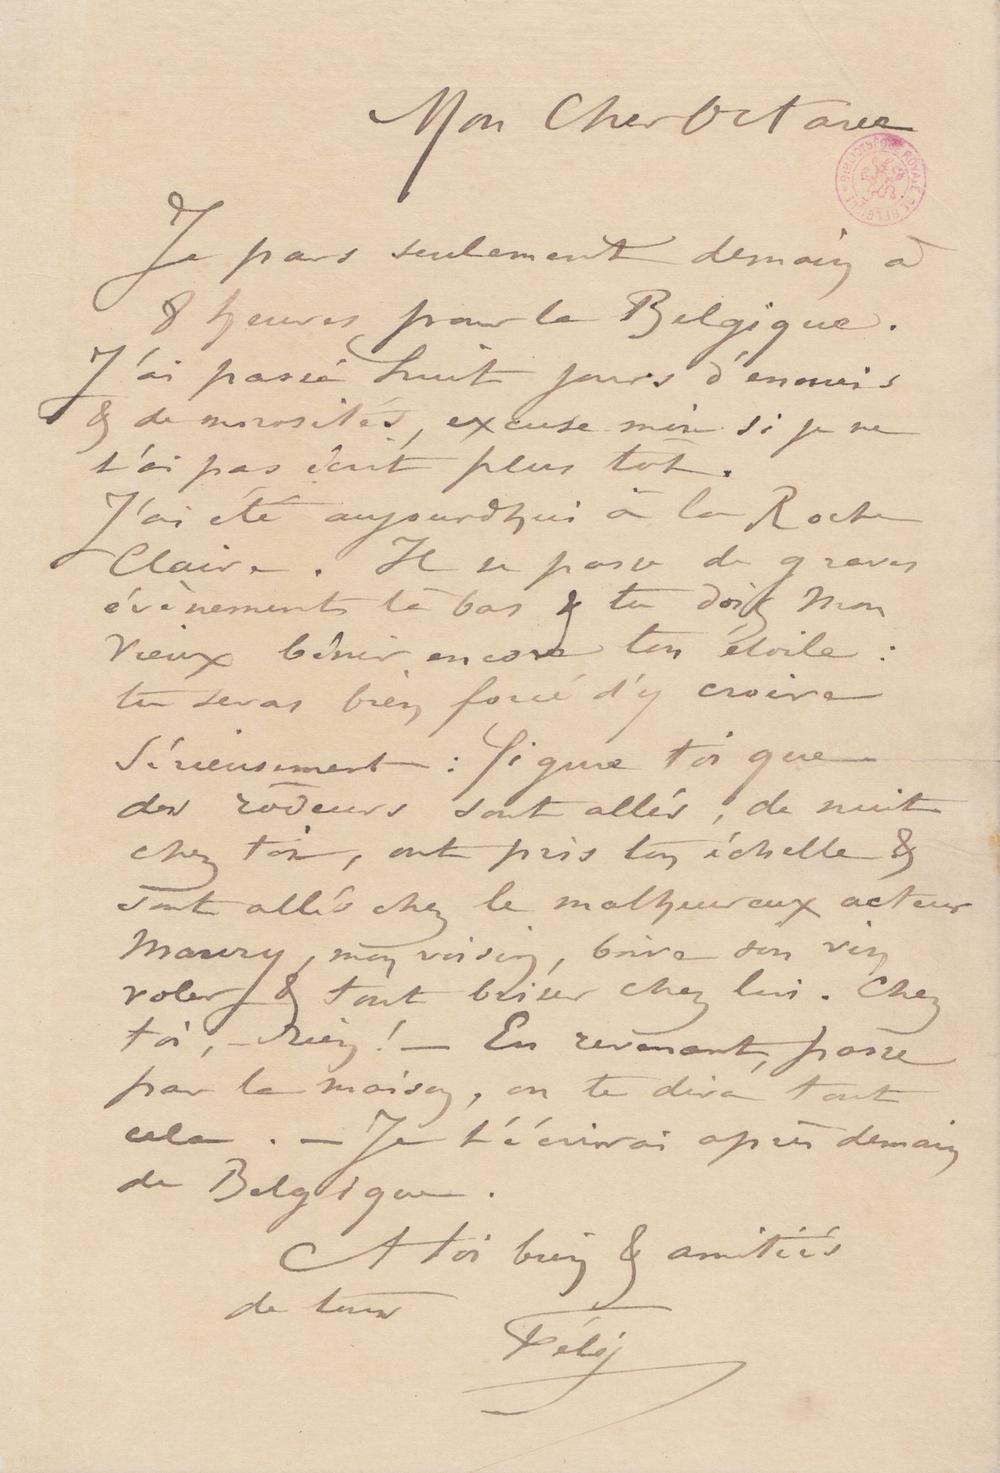 Mon Cher Octave
BIBLIOTHÈQUE ROYALE DE BELGIQUE
Je pars seulement demain à
8 heures pour la Belgique.
J'ai passé huit jours d'ennuis
& de morosités, excuse moi si je ne
t'ai pas écrit plus tôt.
J'ai été aujourdhui à la Roche
Claire. Il se passe de graves
évènements là bas & tu dois mon
vieux bénir encore ton étoile :
tu seras bien forcé d'y croire
sérieusement : figure toi que
des rôdeurs sont allés, de nuit
chez toi, ont pris ton échelle &
sont allés chez le malheureux acteur
Maury, mon voisin, boire son vin
voler & tout briser chez lui. Chez
toi, – Rien! – En revenant, passe
par la maison, on te dira tout
cela. – Je t'écrirai après demain
de Belgique.
A toi bien & amitiés
de tous
Féli